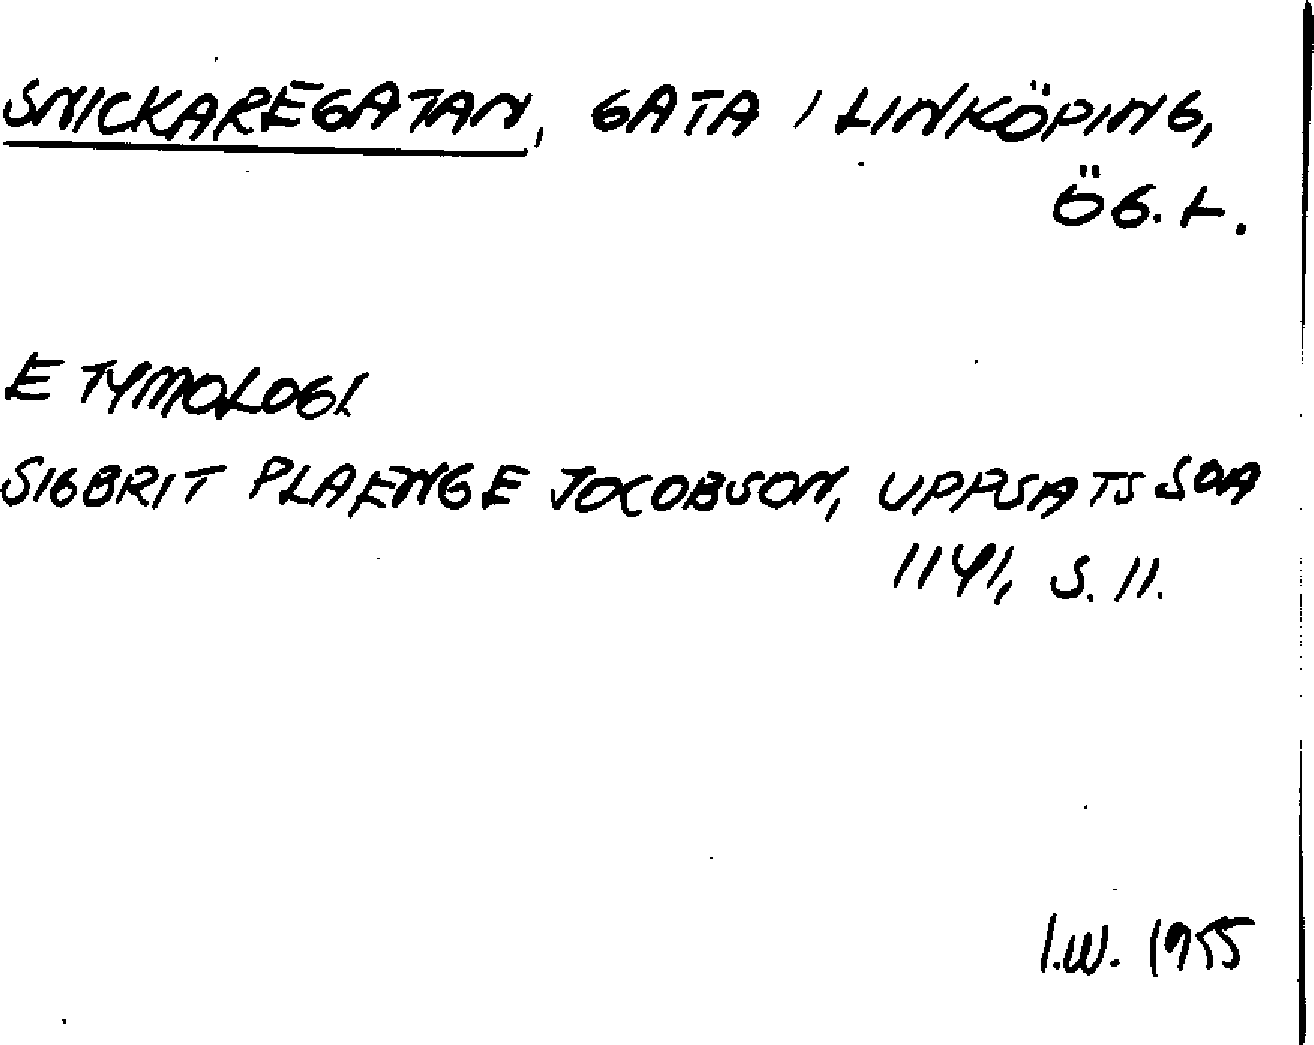 SNICKAREGATAN, GATA I LINKÖPING,
ÖG. L.
ETYMOLOGI.
SIGBRIT PLAENGE JOCOBSON, UPPSATS SOA
1141, S. 11.
I.W. 1955